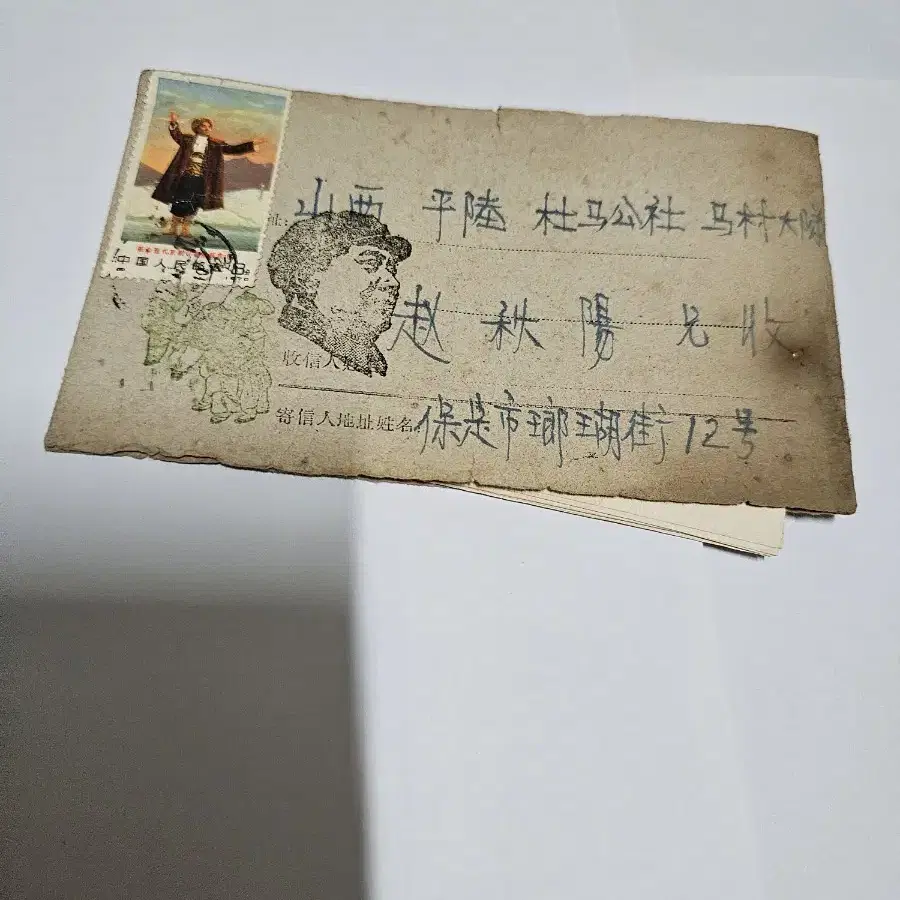 中国人民邮政
址: 山西 平陆 杜马公社 马村大队
收信人姓名 赵秋陽 兄收
寄信人地址姓名 保定市 街12号